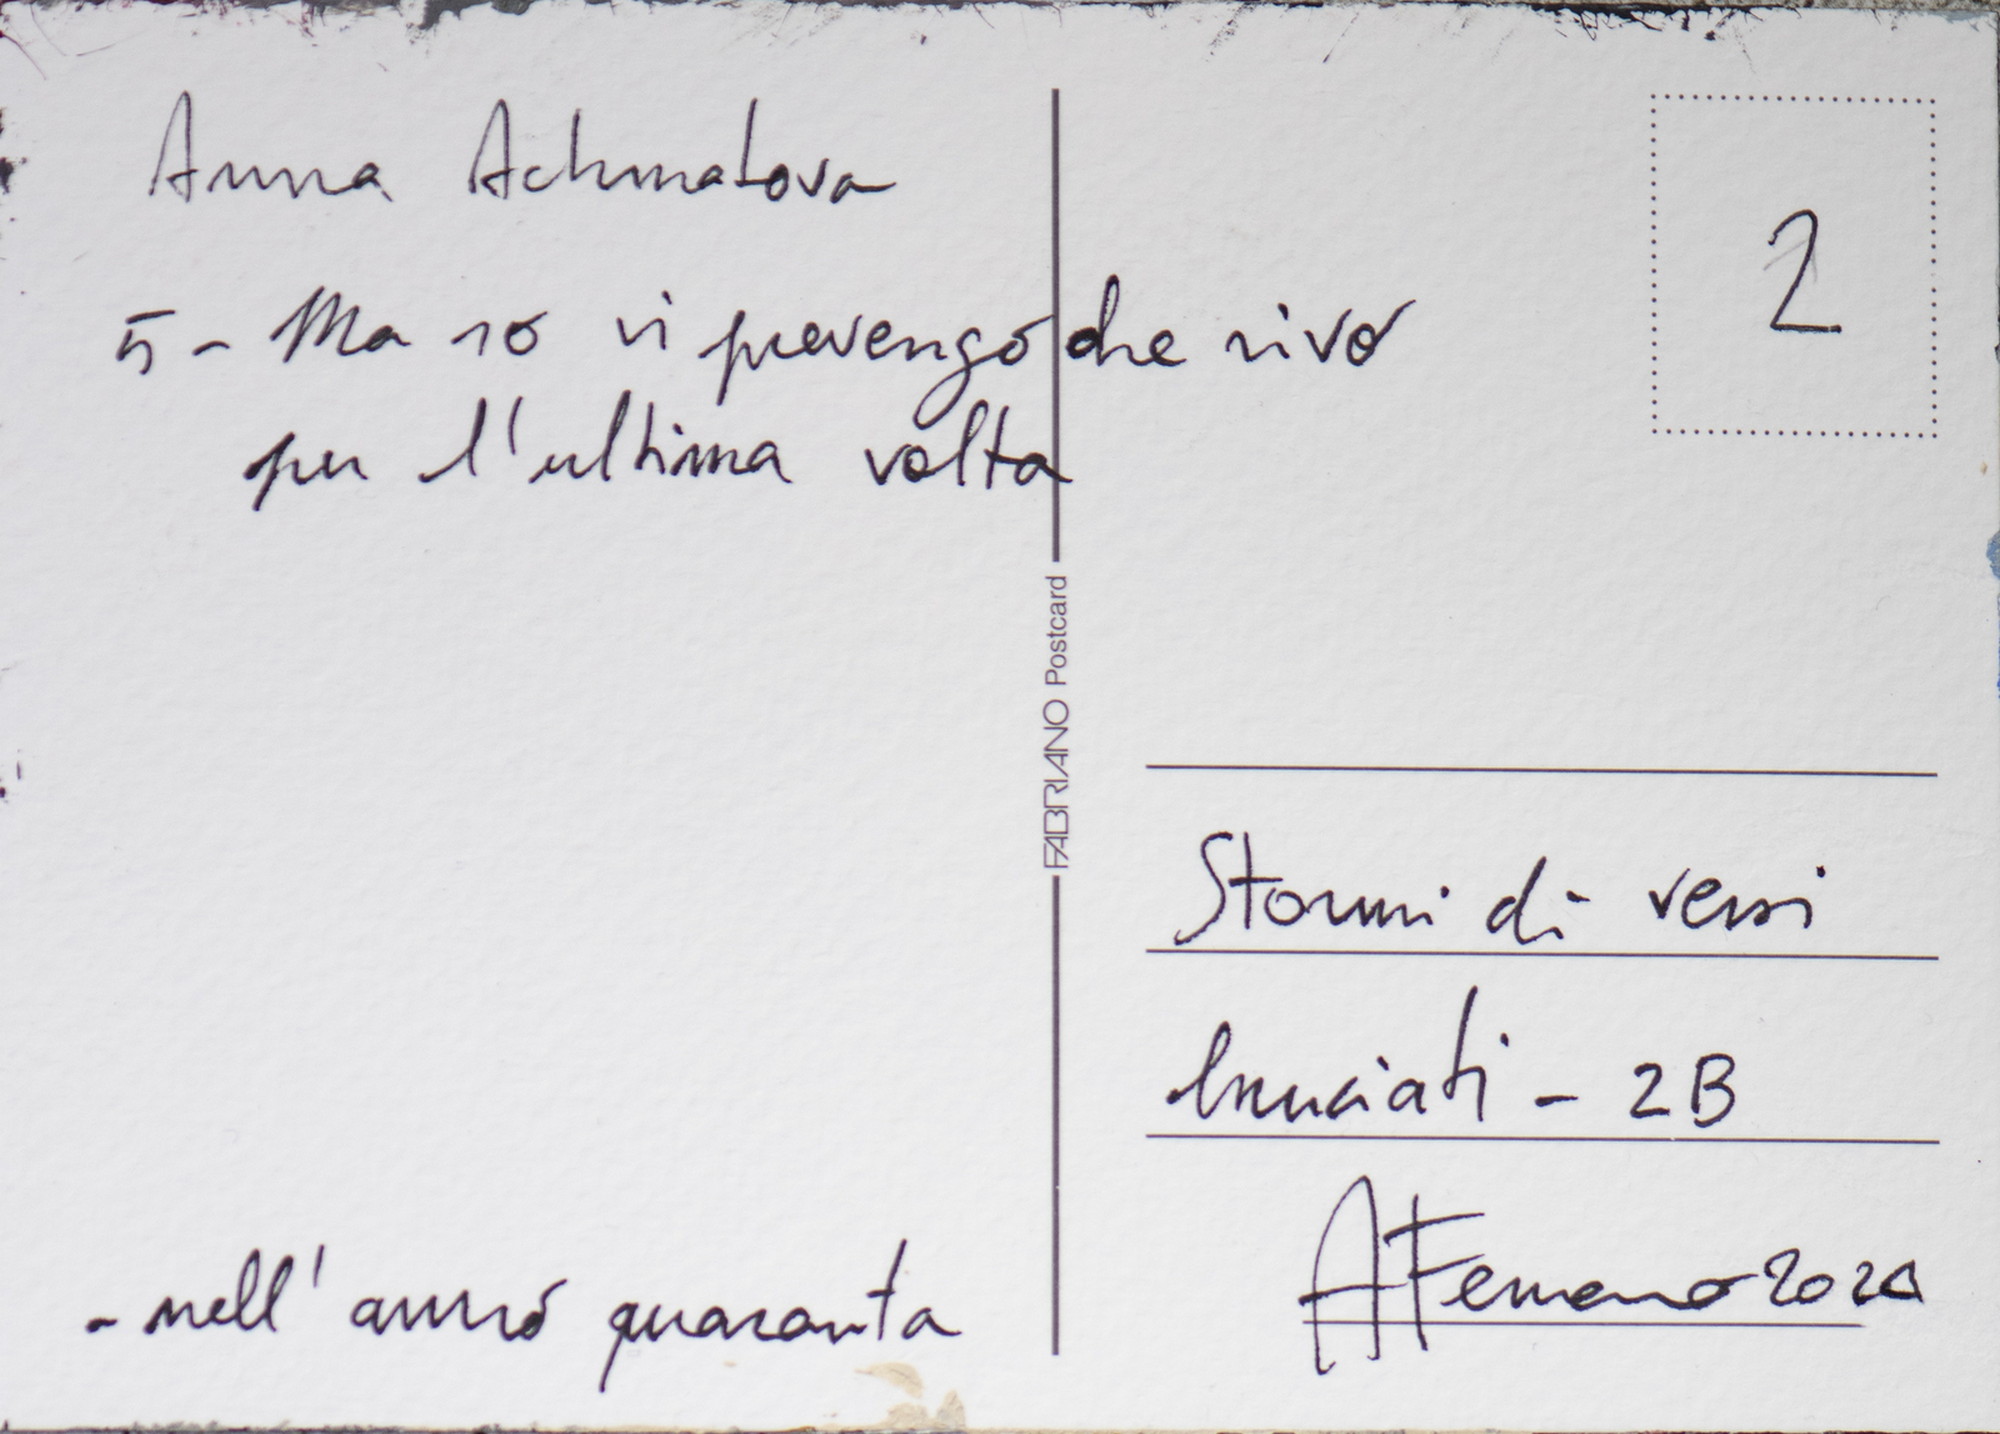 Anna Achmatova
5 - Ma io vi prevengo che vivo
per l'ultima volta
- nell'anno quaranta
2
FABRIANO Postcard
Stormi di versi
bruciati - 2B
AFerrero 2020